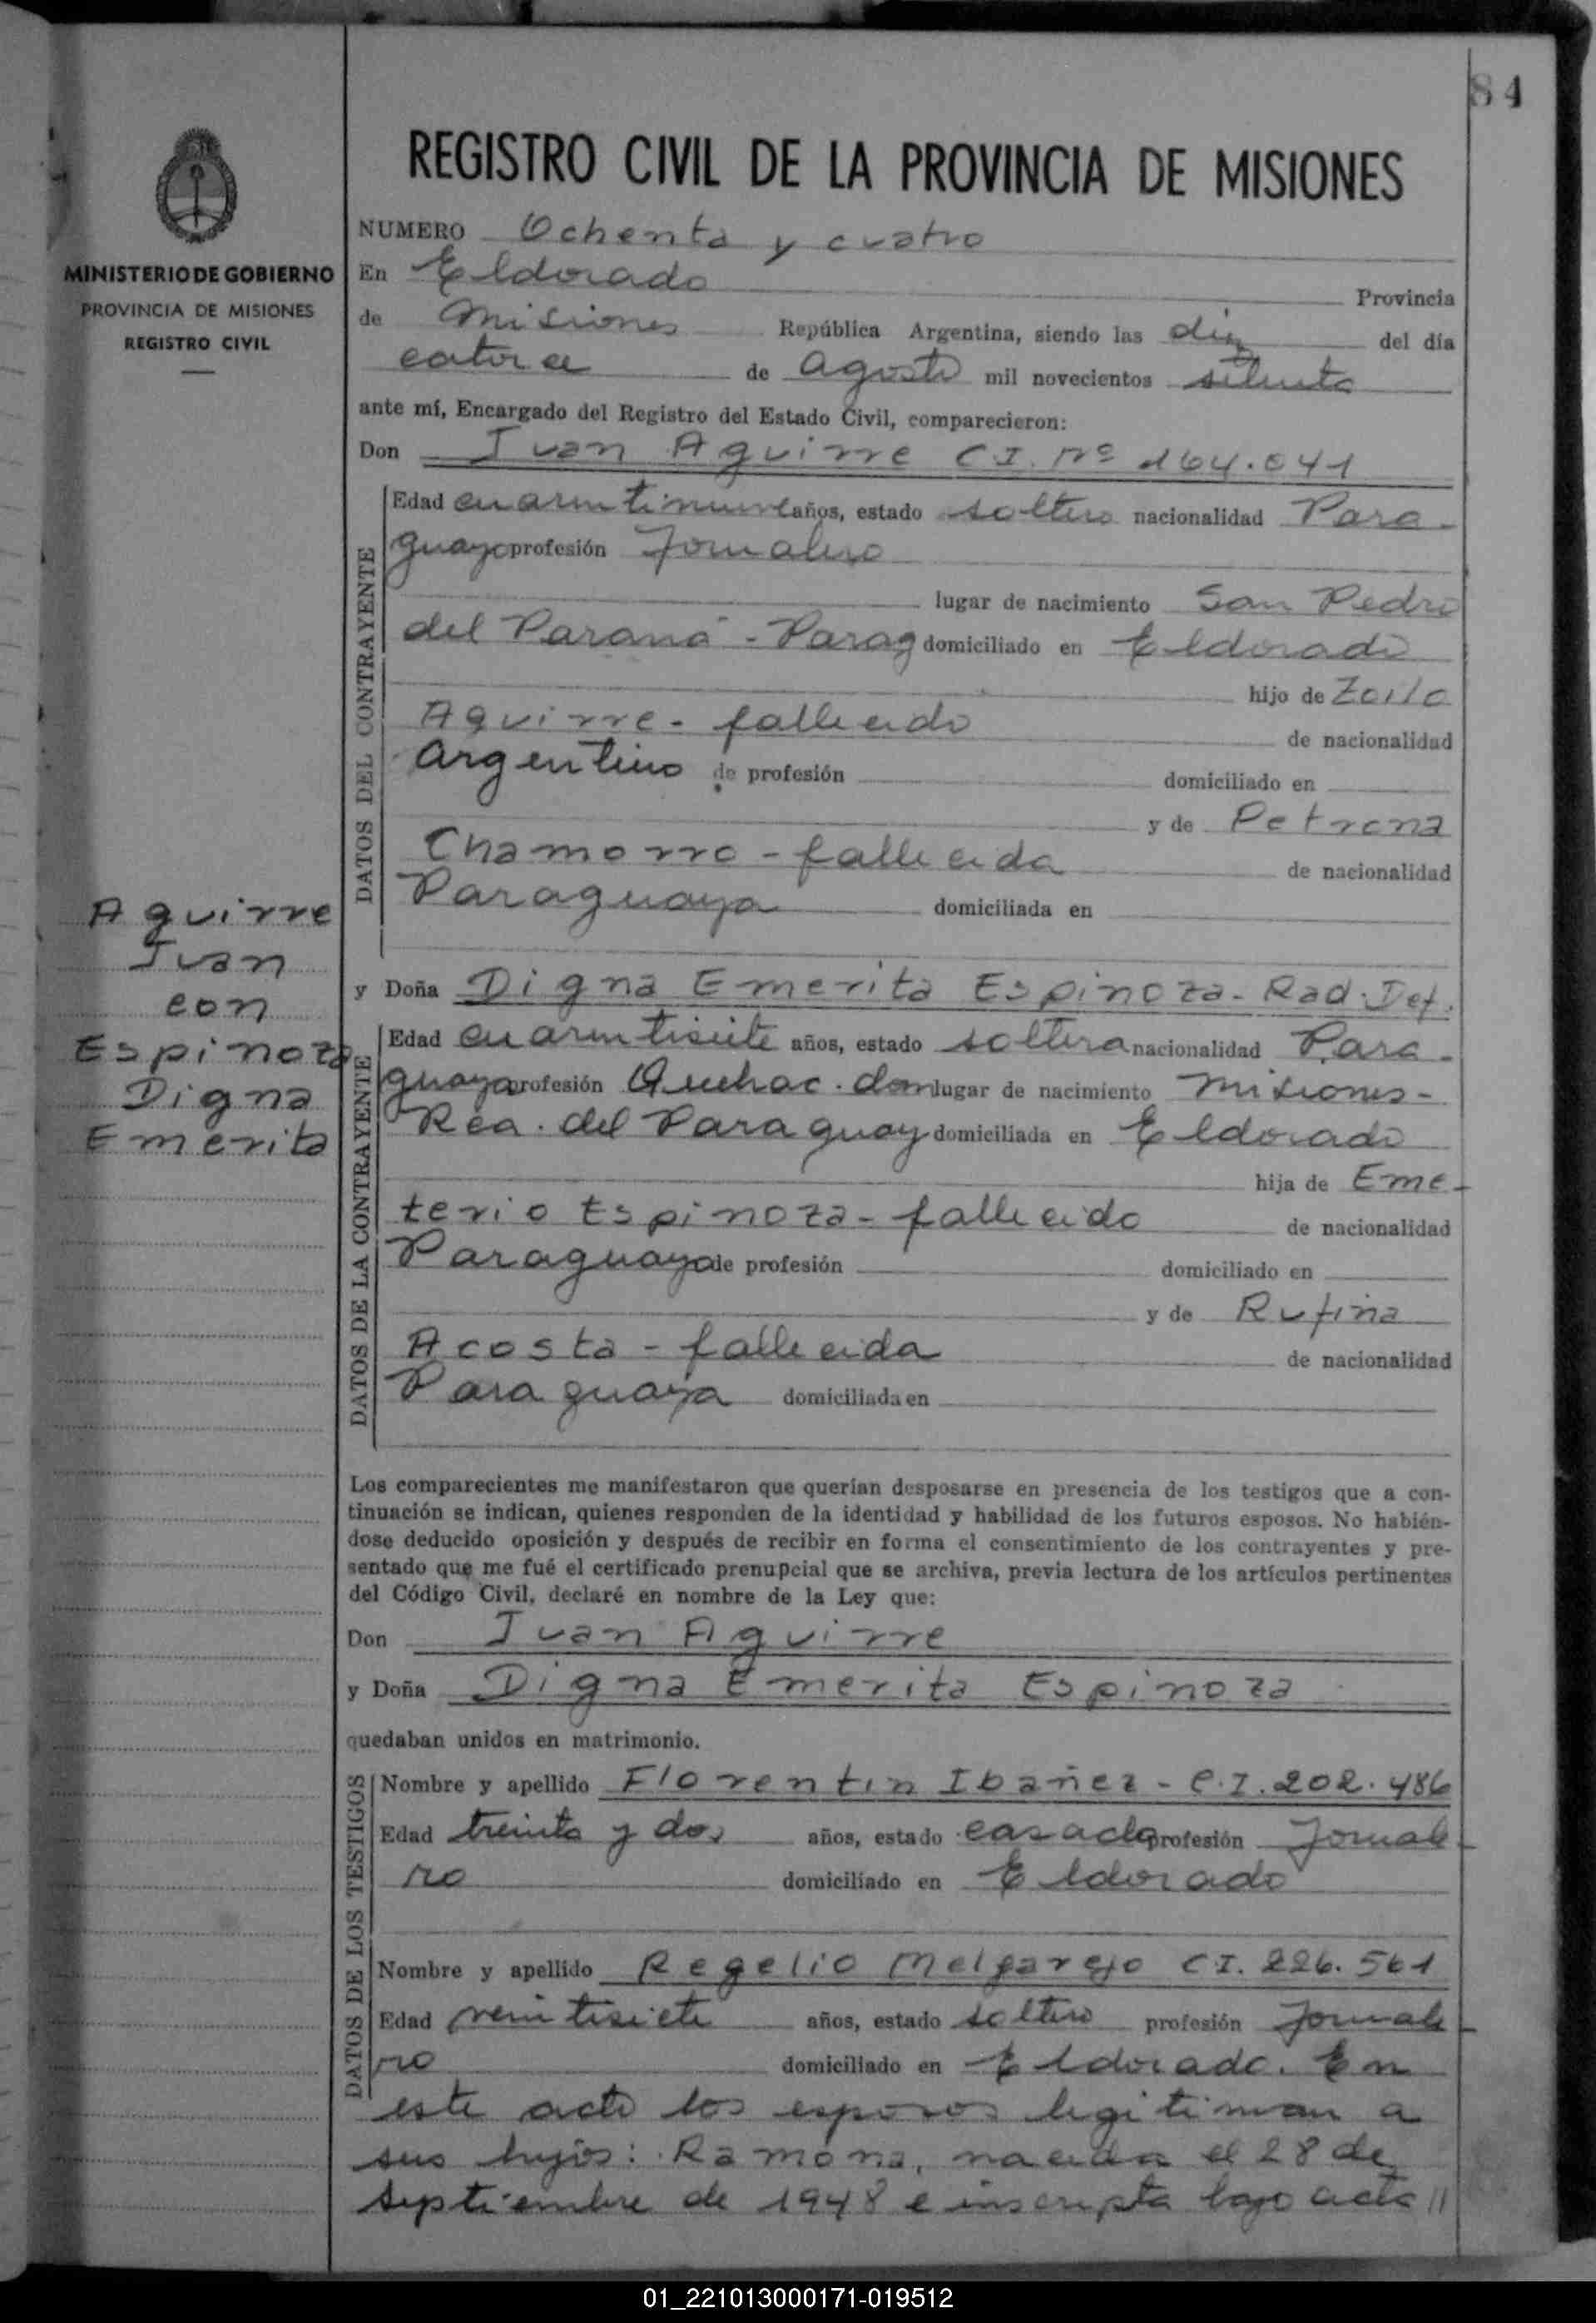 84
REGISTRO CIVIL DE LA PROVINCIA DE MISIONES
MINISTERIO DE GOBIERNO
PROVINCIA DE MISIONES
REGISTRO CIVIL
NUMERO Ochenta y cuatro
En Eldorado Provincia
de Misiones República Argentina, siendo las diez del día
catorce de Agosto mil novecientos setenta
ante mí, Encargado del Registro del Estado Civil, comparecieron:
Don Juan Aguirre C.I. Nº 164.041
DATOS DEL CONTRAYENTE
Edad cuarentinueve años, estado soltero nacionalidad Para-
guayo profesión Jornalero
lugar de nacimiento San Pedro
del Paraná - Parag domiciliado en Eldorado
hijo de Zoilo
Aguirre - fallecido de nacionalidad
Argentino de profesión domiciliado en
y de Petrona
Chamorro - fallecida de nacionalidad
Paraguaya domiciliada en
Aguirre
Juan
con
Espinoza
Digna
Emerita
y Doña Digna Emerita Espinoza - Rad. Def.
DATOS DE LA CONTRAYENTE
Edad cuarentisiete años, estado soltera nacionalidad Para-
guaya profesión Quehac. dom lugar de nacimiento Misiones -
Rea. del Paraguay domiciliada en Eldorado
hija de Eme-
terio Espinoza - fallecido de nacionalidad
Paraguayo de profesión domiciliado en
y de Rufina
Acosta - fallecida de nacionalidad
Paraguaya domiciliada en
Los comparecientes me manifestaron que querían desposarse en presencia de los testigos que a con-
tinuación se indican, quienes responden de la identidad y habilidad de los futuros esposos. No habién-
dose deducido oposición y después de recibir en forma el consentimiento de los contrayentes y pre-
sentado que me fué el certificado prenupcial que se archiva, previa lectura de los artículos pertinentes
del Código Civil, declaré en nombre de la Ley que:
Don Juan Aguirre
y Doña Digna Emerita Espinoza
quedaban unidos en matrimonio.
DATOS DE LOS TESTIGOS
Nombre y apellido Florentin Ibañez - C.I. 202.486
Edad treinta y dos años, estado casado profesión Jornale-
ro domiciliado en Eldorado
Nombre y apellido Regelio Melgarejo C.I. 226.561
Edad veintisiete años, estado soltero profesión Jornale-
ro domiciliado en Eldorado. En
este acto los esposos legitiman a
sus hijos: Ramona, nacida el 28 de
septiembre de 1948 e inscripta bajo acta //
01_221013000171-019512